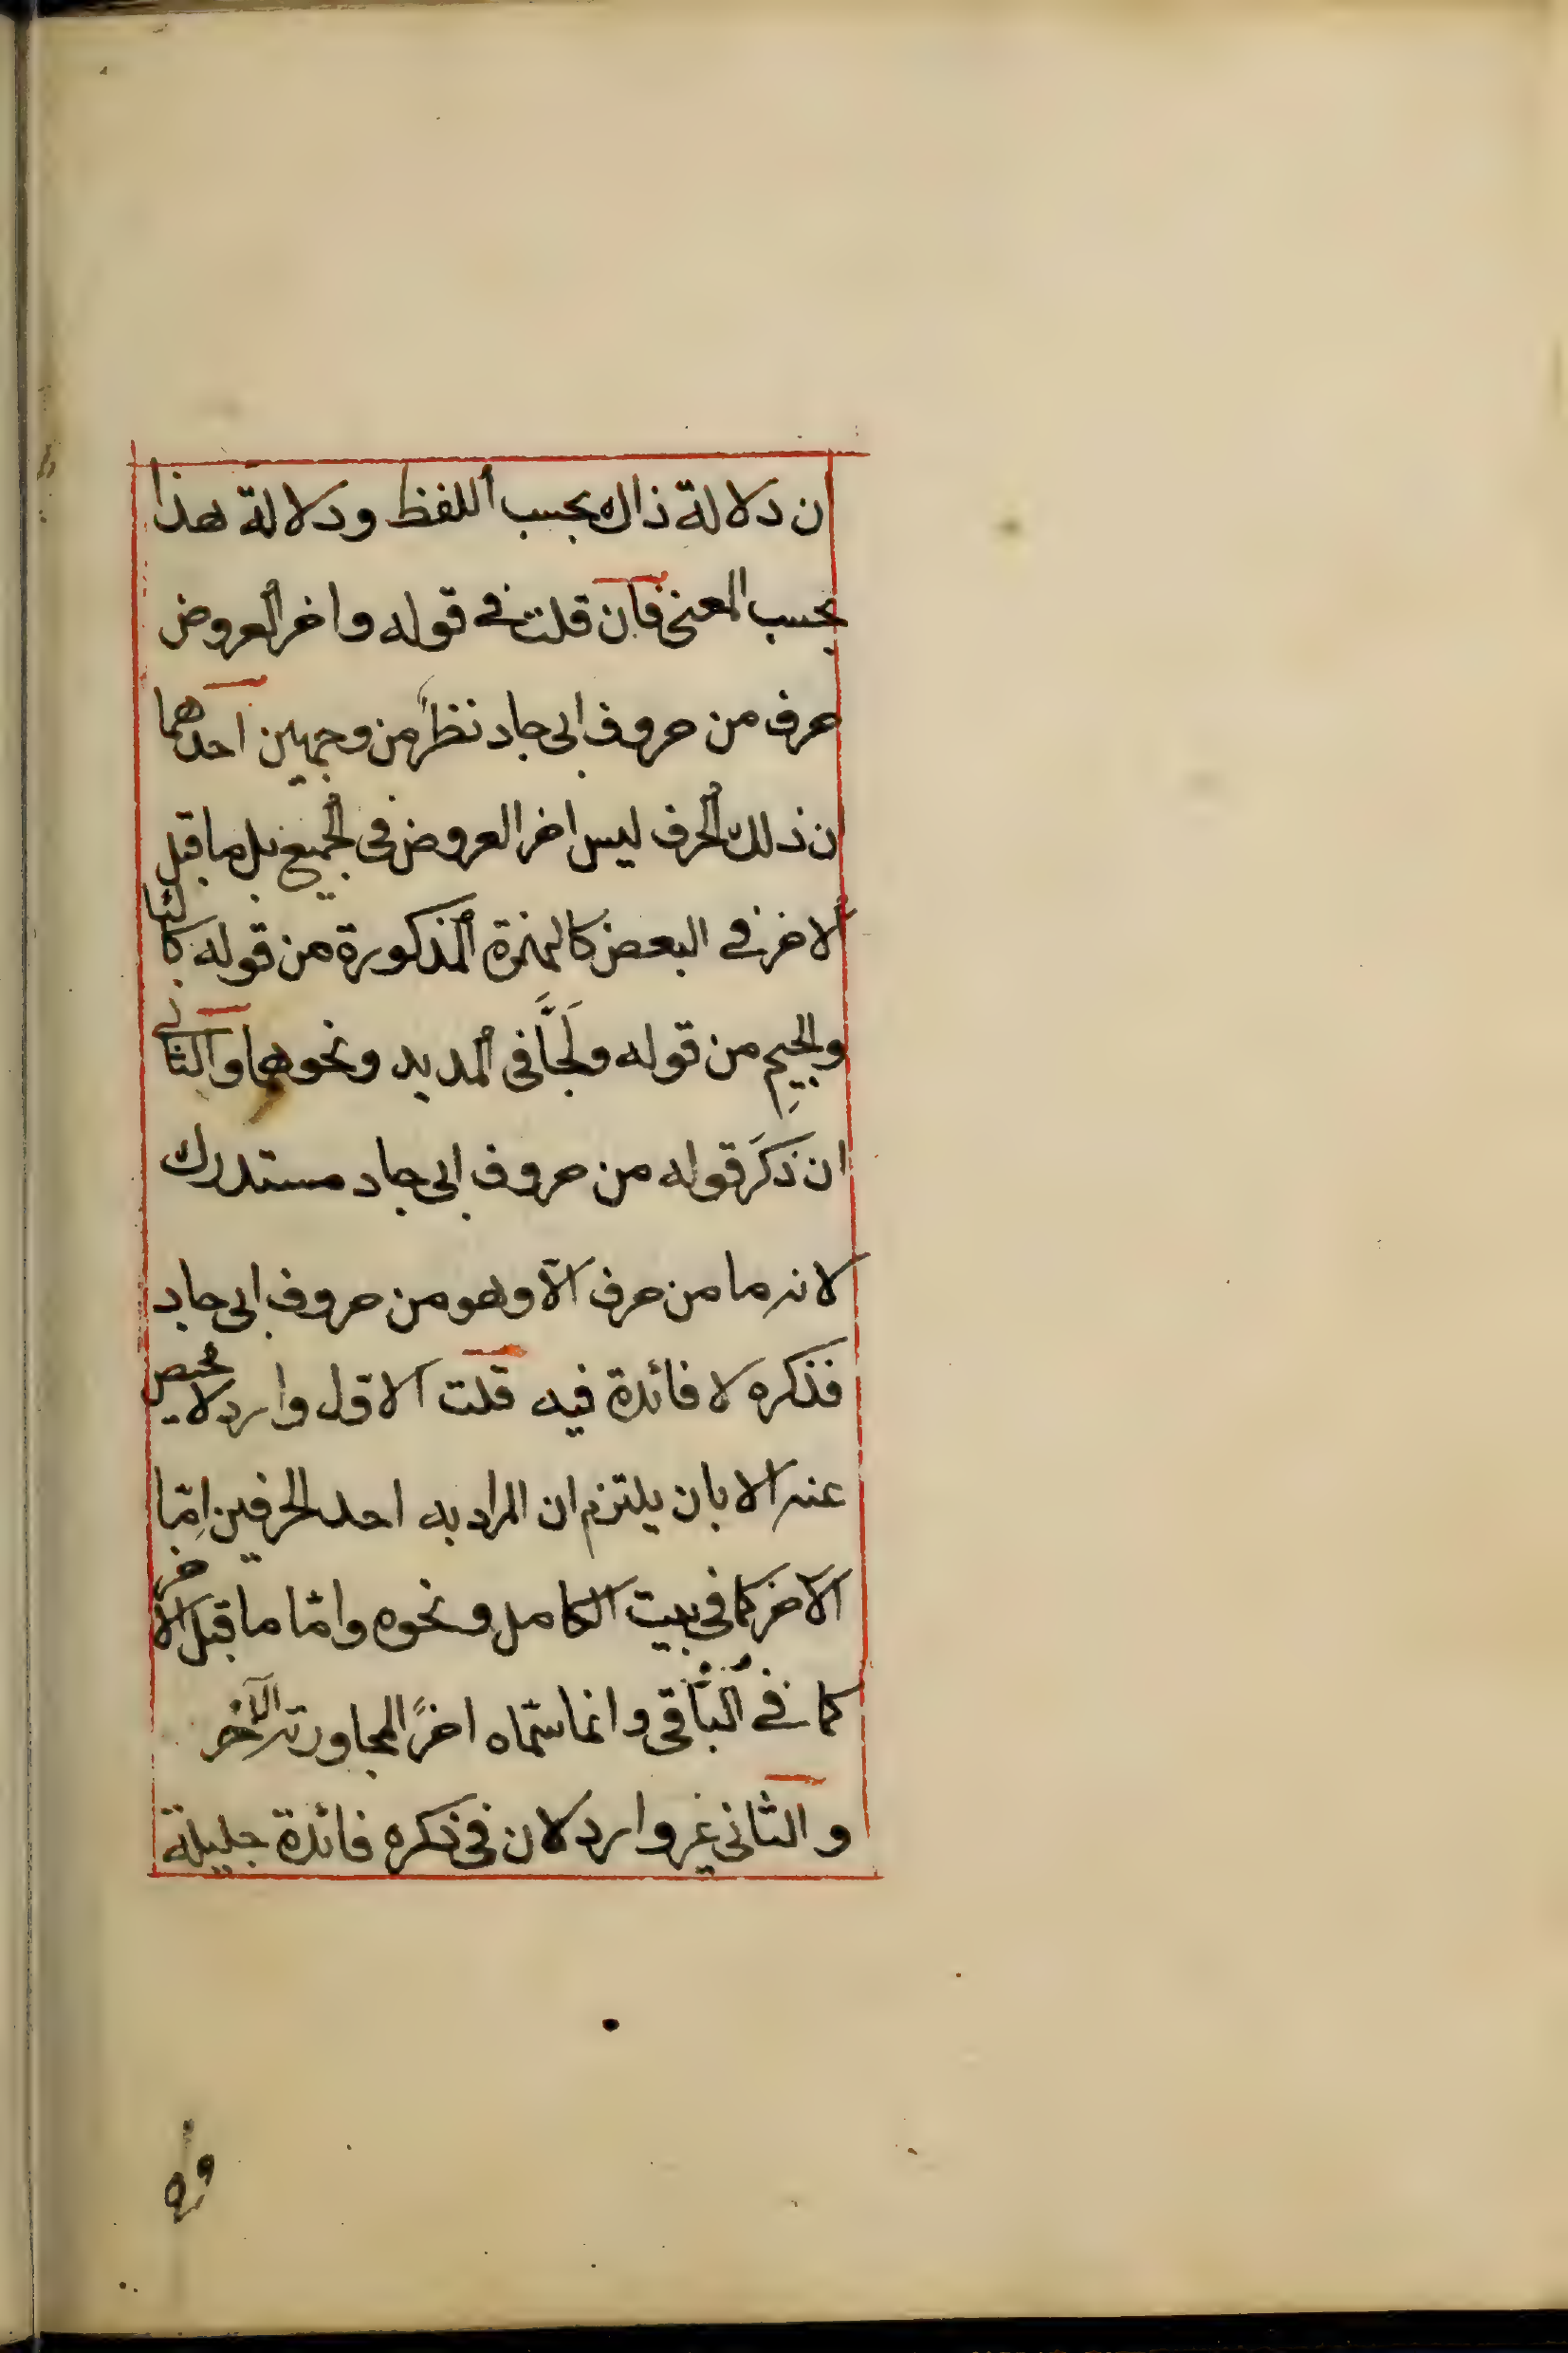 ان دلالة ذاك بحسب اللفظ ودلالة هذا
بحسب المعنى فان قلت فى قوله واخر العروض
حرف من حروف ابى جاد نظرٌ من وجهين احدهما
ان ذلك الحرف ليس اخر العروض فى الجميع بل ما قبل
الاخر فى البعض كالهمزة المذكورة من قوله
والجيمِ من قوله ولَجَّاً فى المديد ونحوهما والثانى
ان ذكَرَ قوله من حروف ابى جاد مستدرك
لانه ما من حرف الآ وهو من حروف ابى جاد
فذكره لا فائدة فيه قلت الاول وارد لا محيص
عنه الا بان يلتزم ان المراد به احد الحرفين اِمّا
الاخر كما فى بيت الكامل ونحوه وامّا ما قبل الآخر
كما فى البَاقى وانما سمّاه اخرًا لمجاورته الآخر
والثانى غير وارد لان فى ذكره فائدة جليلة